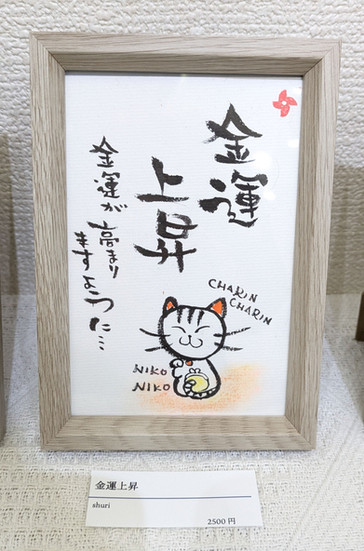 金運
上昇
金運が高まり
ますように…
CHARIN
CHARIN
NIKO
NIKO
金運上昇
shuri
2500円